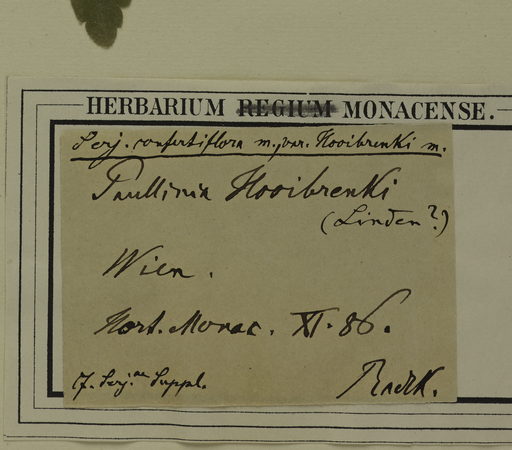 HERBARIUM REGIUM MONACENSE.
Serj. confertiflora m. var. Hooibrenki m.
Paullinia Hooibrenki
(Linden?)
Wien.
Hort. Monac. XI. 86.
Serj. Suppl.
Radlk.